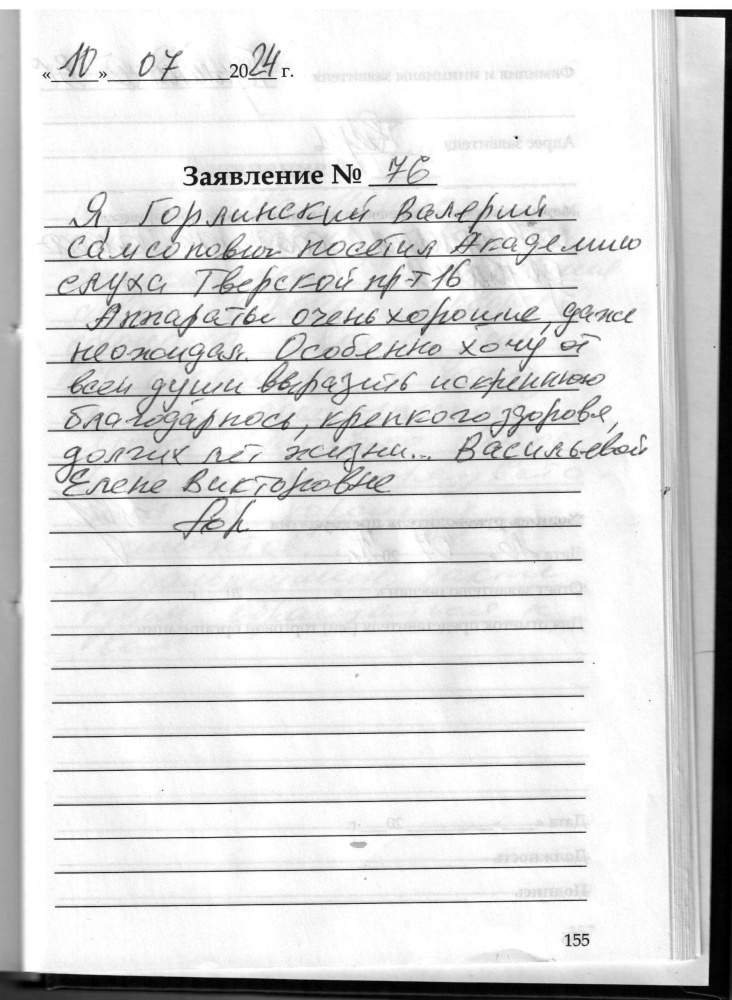 « 10 » 07 2024 г.
Заявление № 76
Я, Горлинский Валерий
Самсонович посетил Академию
слуха Тверской пр-т 16
Аппараты очень хорошие, даже
неожидал. Особенно хочу от
всей души выразить искреннюю
благодарнось, крепкого здоровя,
долгих лет жизни... Васильевой
Елене Викторовне
155